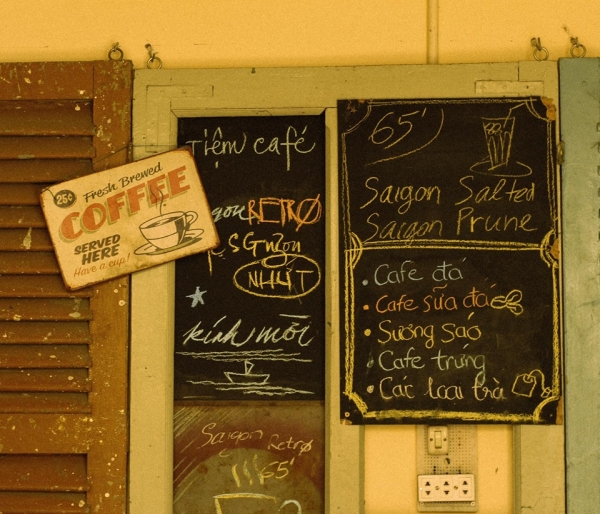 25¢
Fresh Brewed
COFFEE
SERVED
HERE
Have a cup!
Tiệm café
RETRØ
SGngon
NHỨT
kính mời
Saigon Retrø
65'
65'
Saigon Salted
Saigon Prune
• Cafe đá
• Cafe sữa đá
• Sương sáo
• Cafe trứng
• Các loại trà